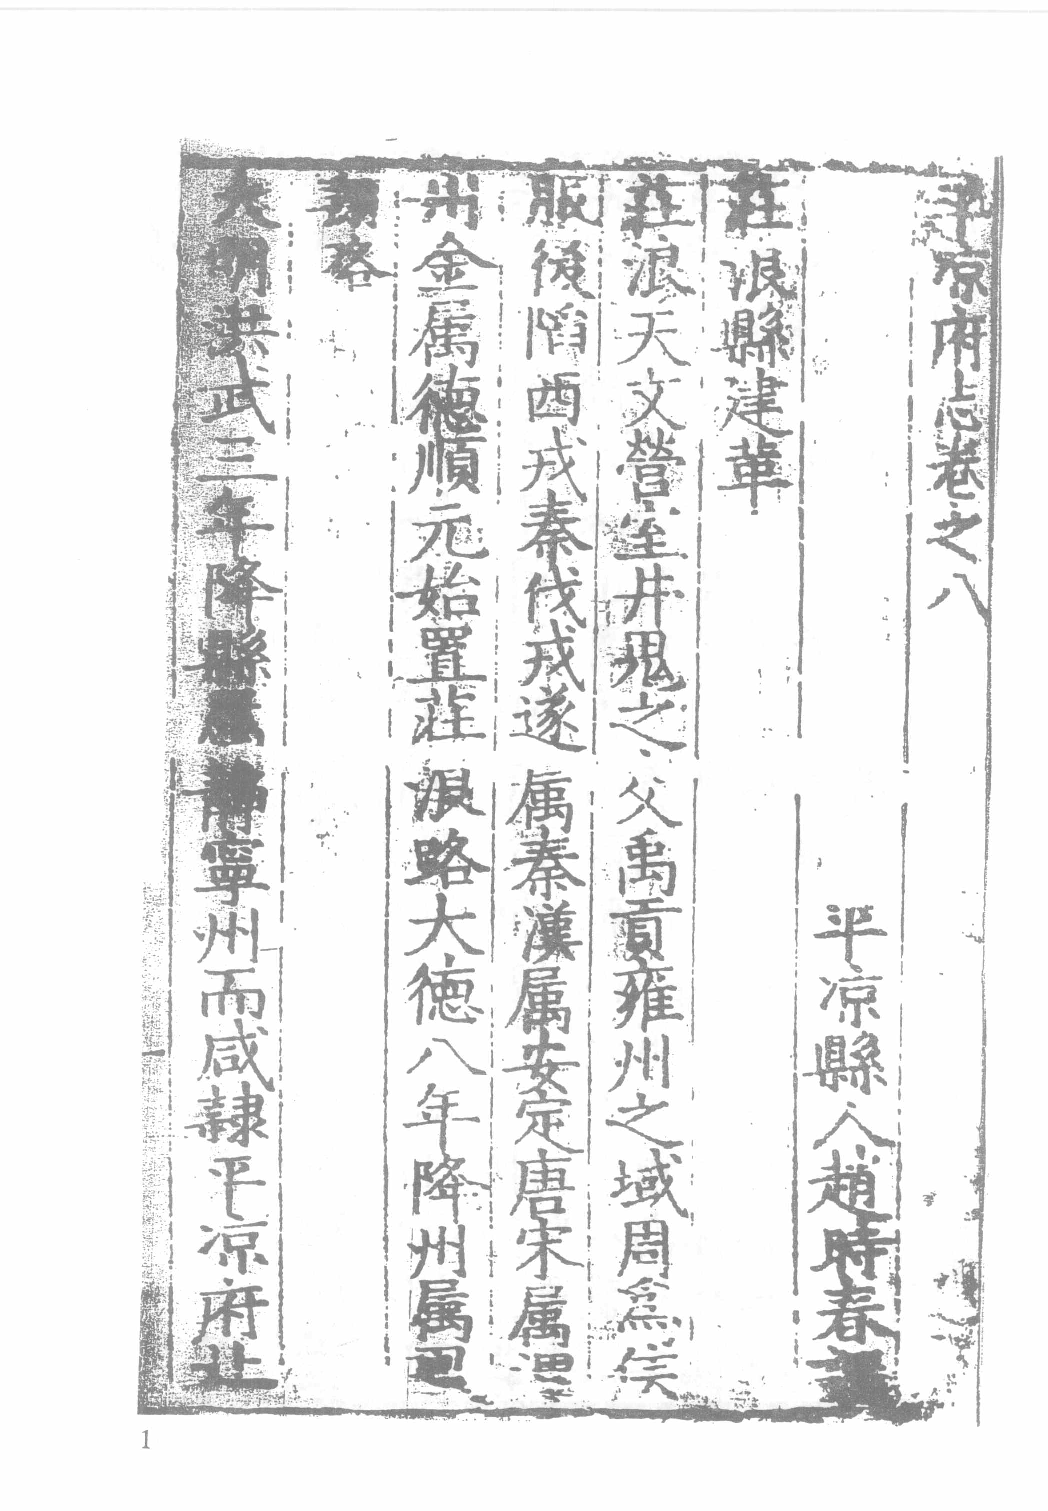 平凉府志卷之八
平凉縣人趙時春
莊浪縣建革
莊浪天文營室井鬼之父禹貢雍州之域周為侯
服後䧟西戎秦伐戎遂属秦漢属安定唐宋属渭
州金属德順元始置莊浪路大德八年降州属巩
路
大明洪武三年降縣属静寧州而咸隷平凉府莊
1